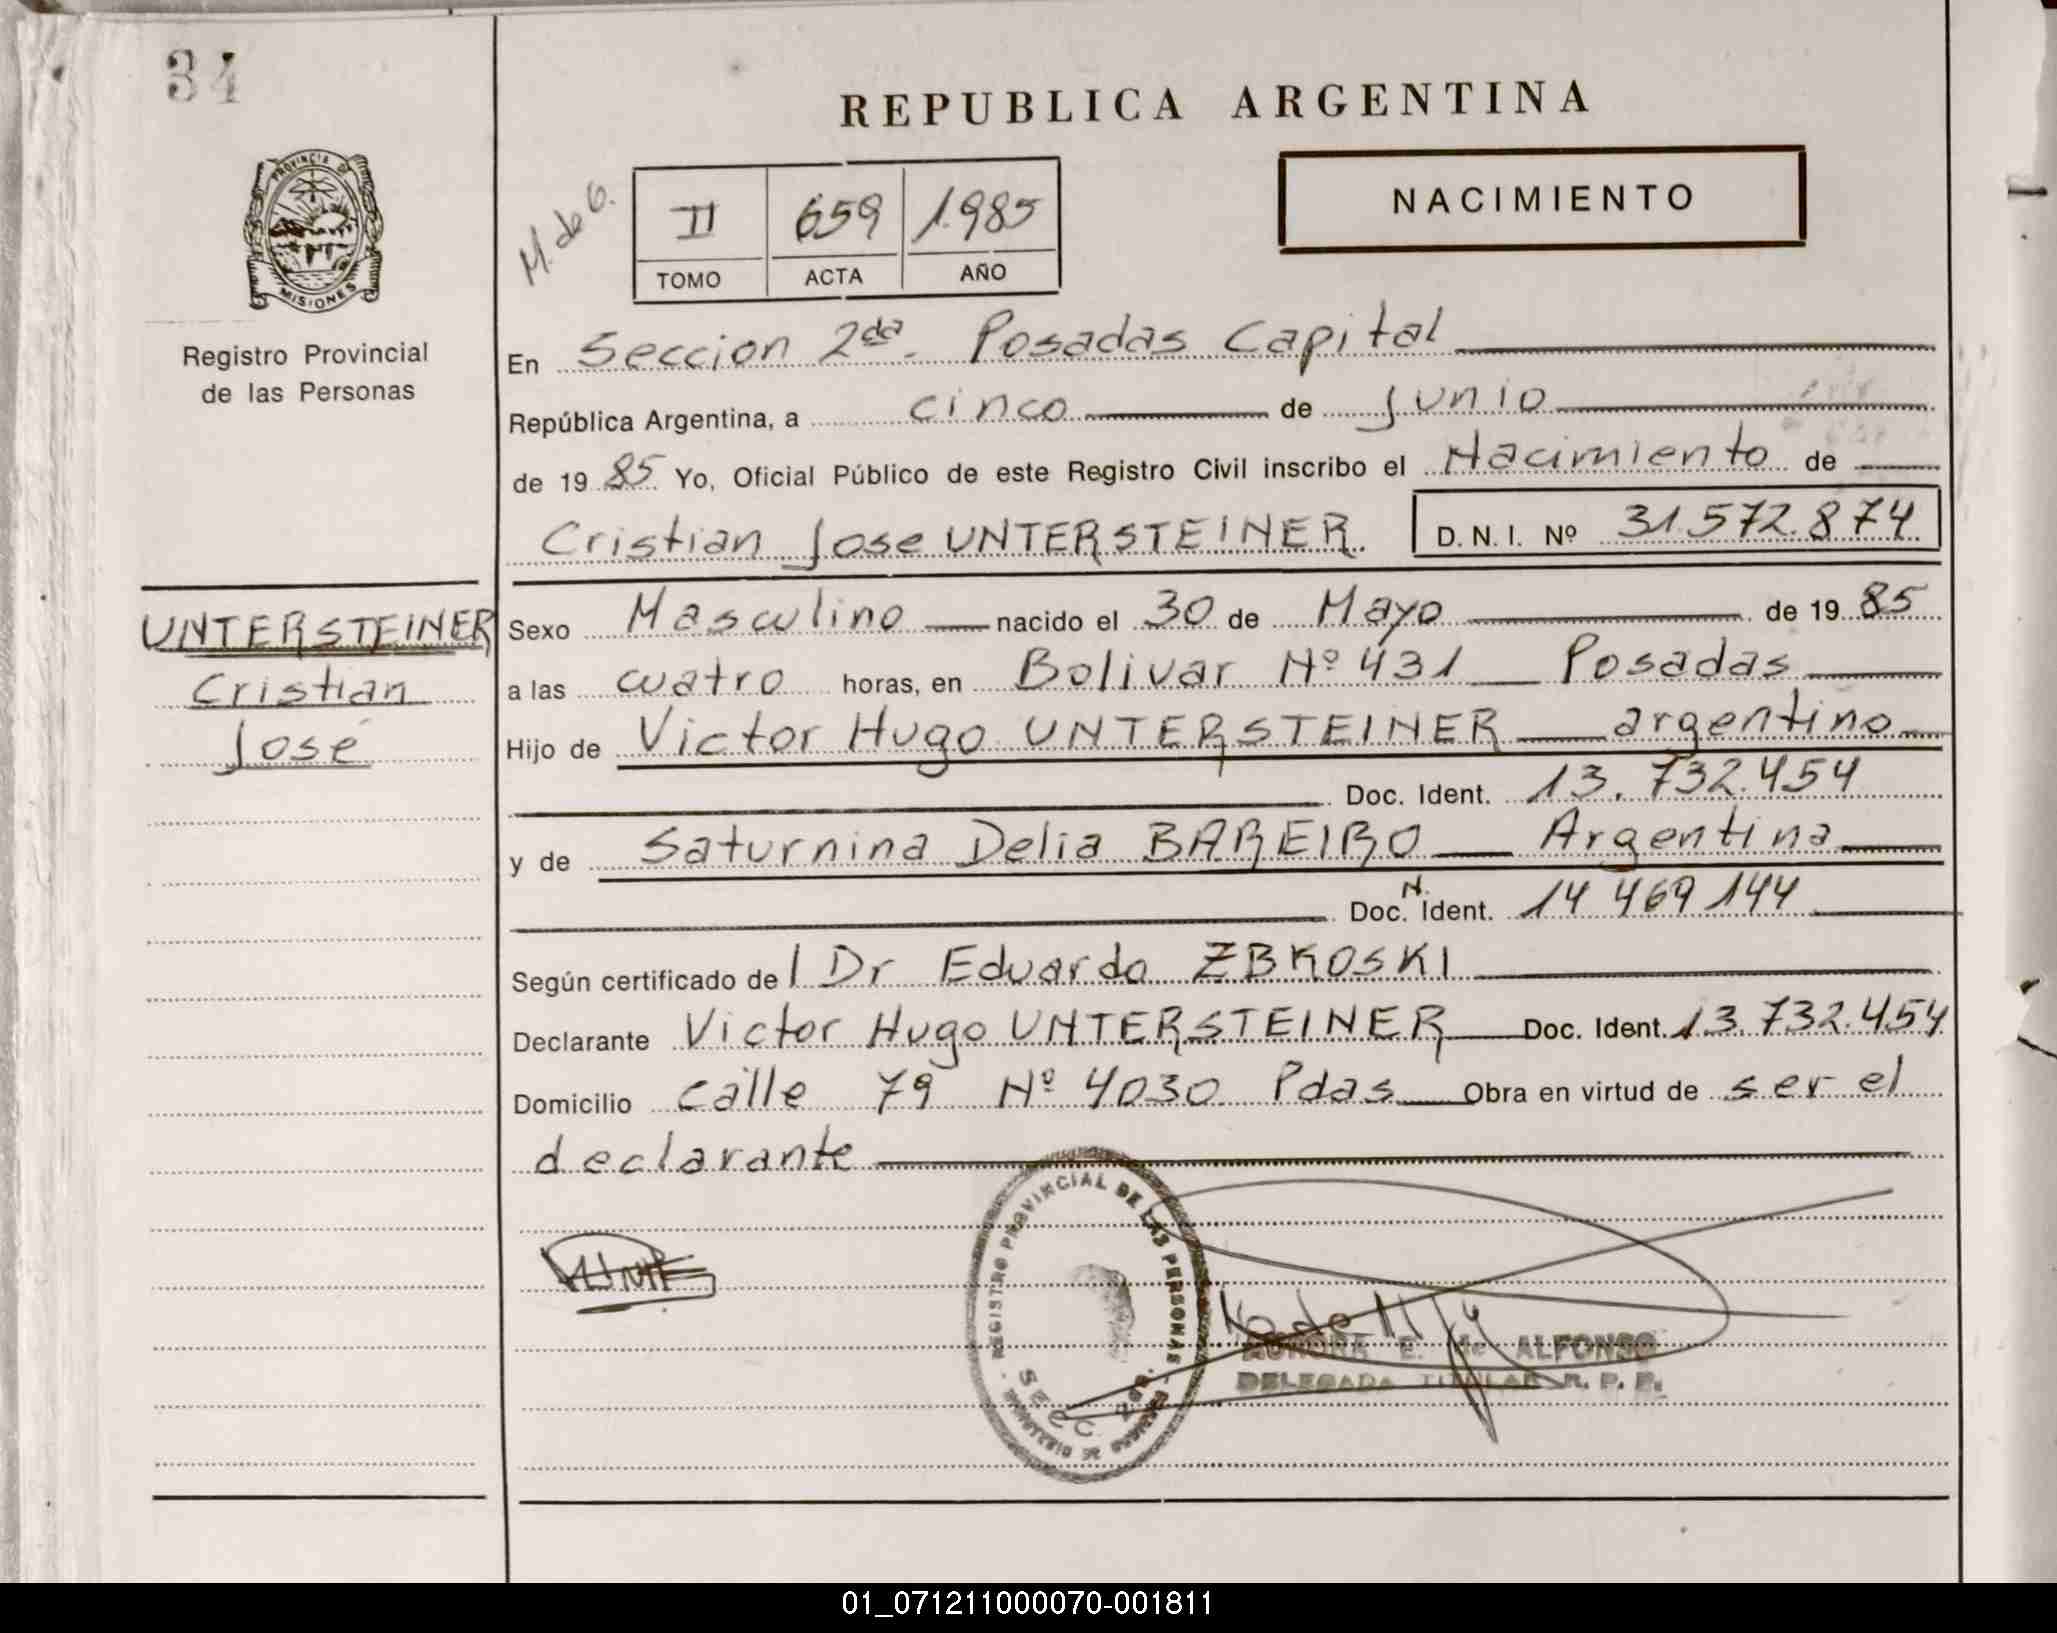 34
REPUBLICA ARGENTINA
PROVINCIA DE
MISIONES
Registro Provincial
de las Personas
M. de G.
II 659 1.985
TOMO ACTA AÑO
NACIMIENTO
En Seccion 2da. Posadas Capital
República Argentina, a cinco de Junio
de 1985 Yo, Oficial Público de este Registro Civil inscribo el Nacimiento de
Cristian Jose UNTERSTEINER. D. N. I. Nº 31.572.874
UNTERSTEINER
Cristian
José
Sexo Masculino nacido el 30 de Mayo de 1985
a las cuatro horas, en Bolivar Nº 431 Posadas
Hijo de Victor Hugo UNTERSTEINER argentino
Doc. Ident. 13.732.454
y de Saturnina Delia BAREIRO Argentina
Doc. N. Ident. 14 469 144
Según certificado de l Dr Eduardo ZBKOSKI
Declarante Victor Hugo UNTERSTEINER Doc. Ident. 13.732.454
Domicilio calle 79 Nº 4030 Pdas Obra en virtud de ser el
declarante
REGISTRO PROVINCIAL DE LAS PERSONAS
SECC 2
E. de ALFONSO
DELEGADA TITULAR R. P. P.
01_071211000070-001811